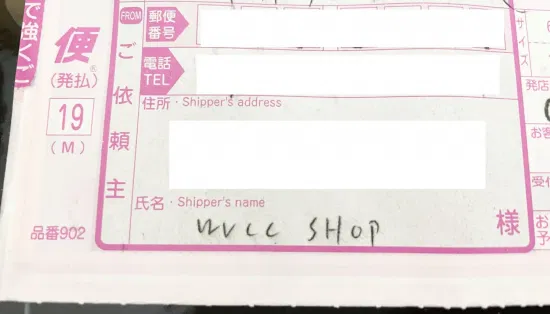 で強くご
便
(発払)
19
(M)
品番902
FROM
郵便番号
電話
TEL
ご依頼主
住所・Shipper's address
氏名・Shipper's name
wvcc SHOP
様
サイズ
発店
お客
受付
お
予